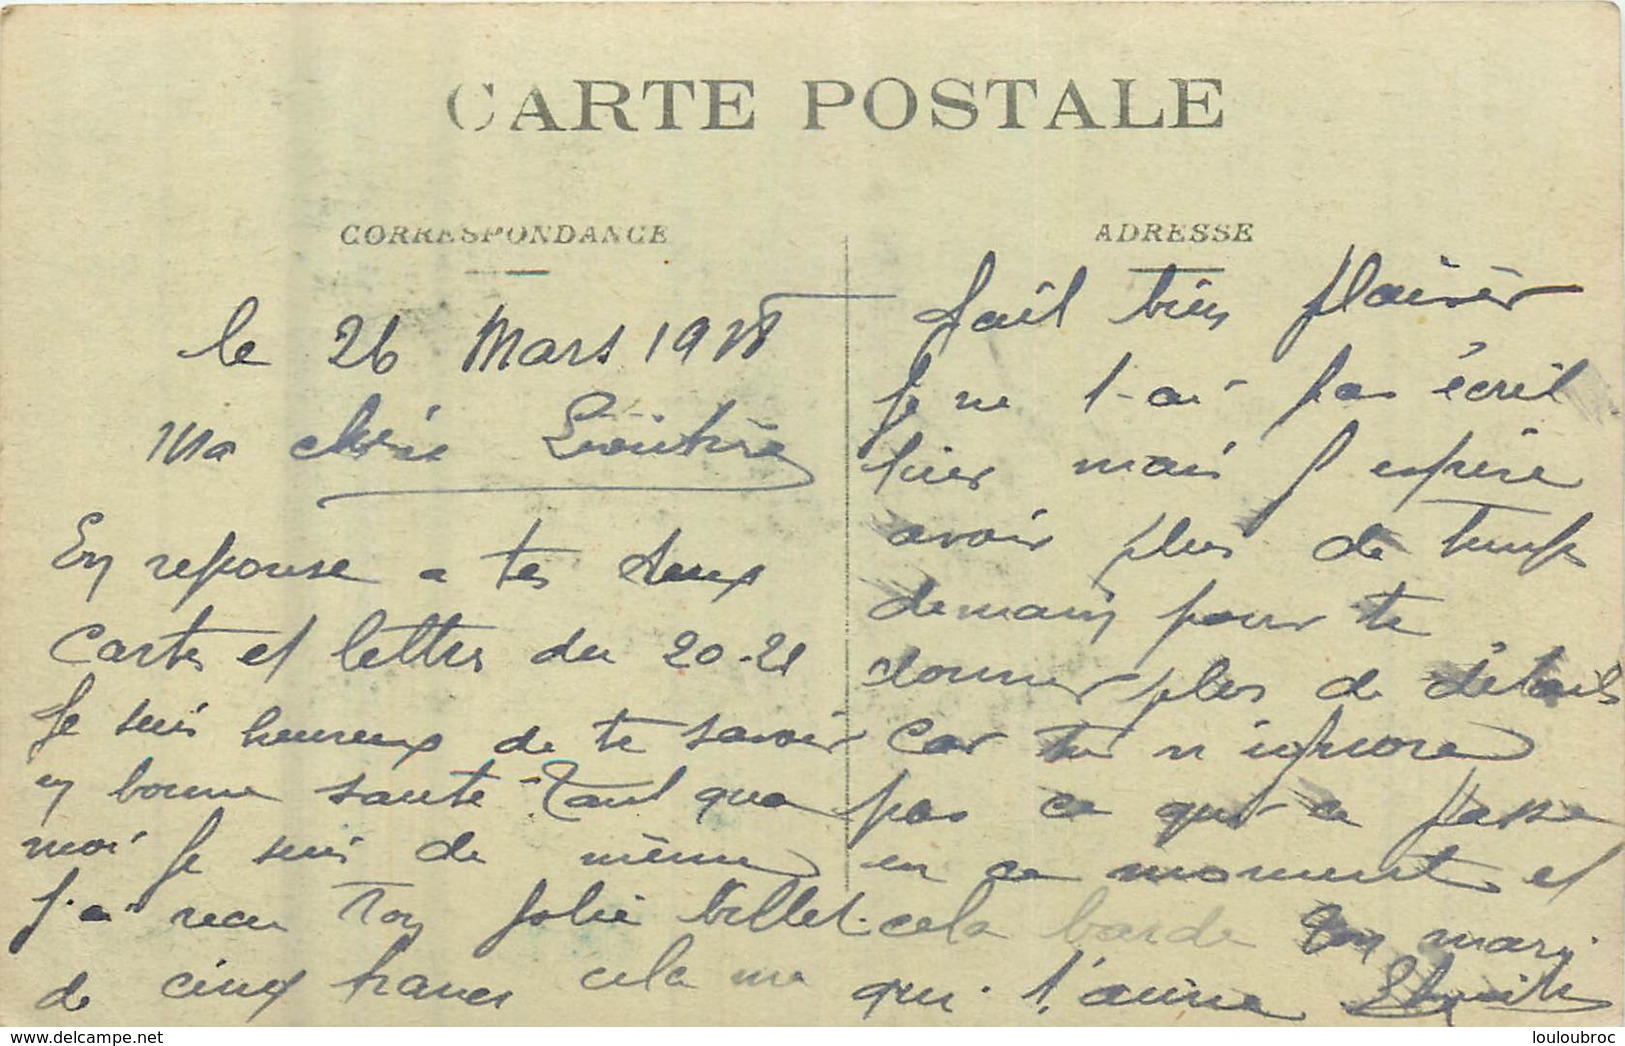 CARTE POSTALE
CORRESPONDANCE
le 26 Mars 1918
Ma chérie
En reponse a tes deux
Cartes et lettres du 20-21
Je suis heureux de te savoir
en bonne santé Tant qua
moi Je suis de même
J-ai recu Ton Jolie billet
de cinq francs cela me
ADRESSE
fait bien plaisir
Je ne t-ai pas écrit
hier mais J espère
avoir plus de temps
demain pour te
donner plus de détails
Car tu n ignore
pas ce qui ce passe
en ce moment et
cela barde Ton mari
qui t'aime
delcampe.net
louloubroc